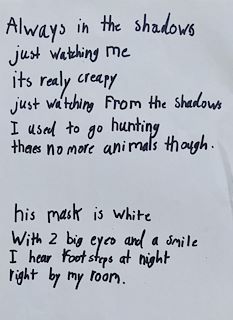 Always in the shadows
just watching me
its realy creapy
just watching From the shadows
I used to go hunting
theres no more animals though.
his mask is white
With 2 big eyes and a smile
I hear footsteps at night
right by my room.